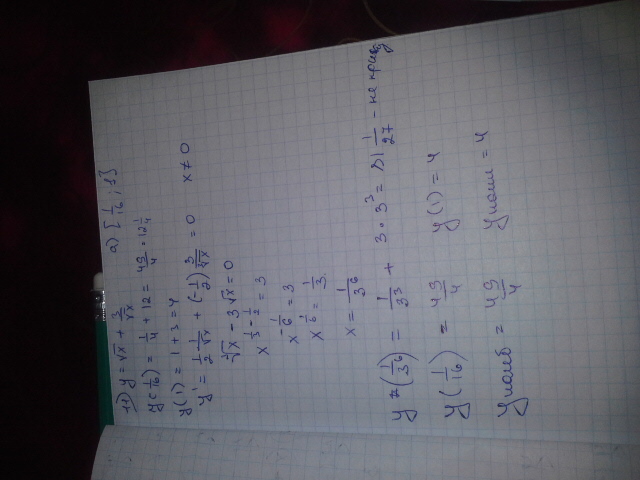 11) y = √x + 3/√x а) [1/16; 1]
y(1/16) = 1/4 + 12 = 49/4 = 12 1/4
y(1) = 1 + 3 = 4
y' = 1/2 · 1/√x + (-1/2) 3/∛x = 0 x ≠ 0
∛x - 3√x = 0
x^(1/3 - 1/2) = 3
x^(-1/6) = 3
x^(1/6) = 1/3
x = 1/3^6
y(1/3^6) = 1/3^3 + 3 · 3^3 = 81 1/27 - не
y(1/16) = 49/4 y(1) = 4
y наиб = 49/4 y наим = 4